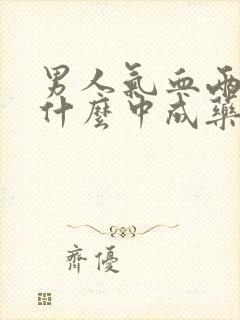 男人氣血兩
什麼中成藥
齊優